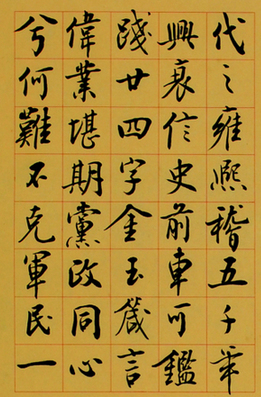 代之雍熙稽五千年
興衰信史前車可鑑
踐廿四字金玉箴言
偉業堪期黨政同心
兮何難不克軍民一